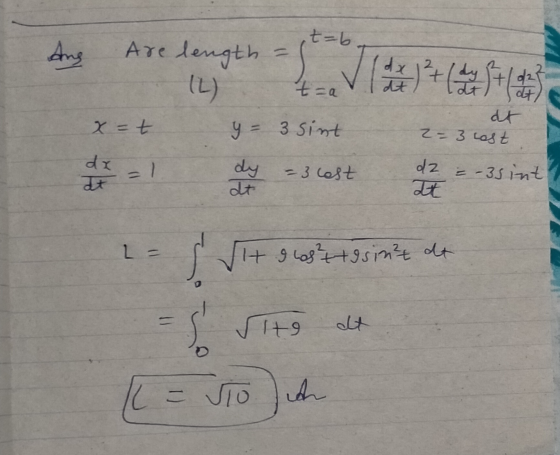 Ans Arc length = ∫_{t=a}^{t=b} √((dx/dt)² + (dy/dt)² + (dz/dt)²) dt
(L)
x = t y = 3 sint z = 3 cost
dx/dt = 1 dy/dt = 3 cost dz/dt = -3 sint
L = ∫_0^1 √(1 + 9 cos²t + 9 sin²t) dt
= ∫_0^1 √(1+9) dt
L = √10